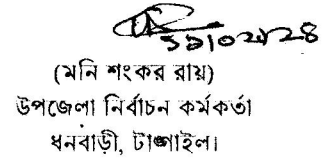 ১১/০২/২৪
(মনি শংকর রায়)
উপজেলা নির্বাচন কর্মকর্তা
ধনবাড়ী, টাঙ্গাইল।